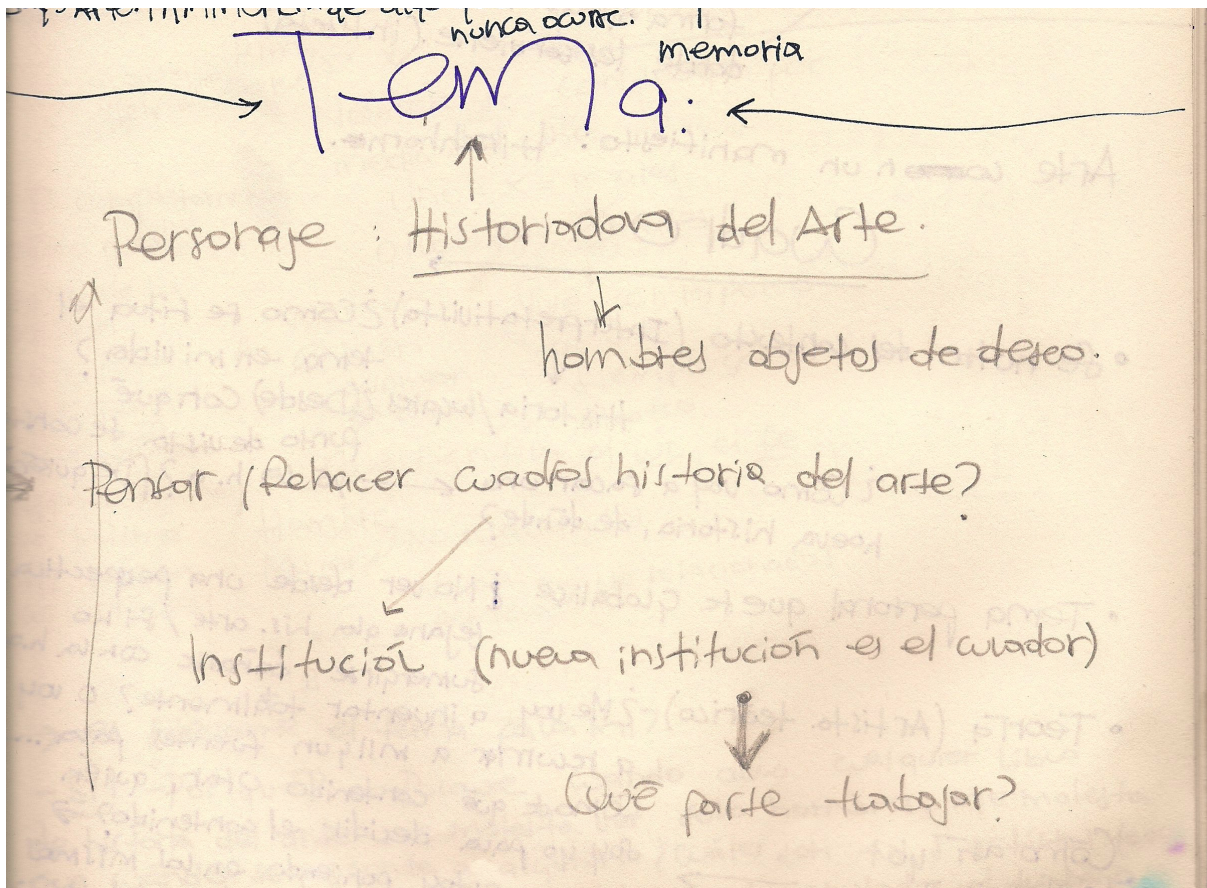 nunca ocurre.
memoria
Tema:
Personaje : Historiadora del Arte.
hombres objetos de deseo.
Pensar / Rehacer cuadros historia del arte?
Institución (nueva institución es el curador)
Qué parte trabajar?